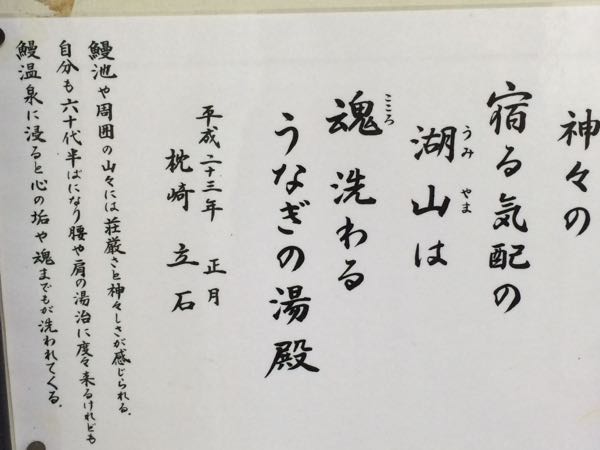 神々の
宿る気配の
湖山は
うみ やま
魂 洗わる
こころ
うなぎの湯殿
平成二十三年 正月
枕崎 立石
鰻池や周囲の山々には荘厳さと神々しさが感じられる.
自分も六十代半ばになり腰や肩の湯治に度々来るけれども
鰻温泉に浸ると心の垢や魂までもが洗われてくる.